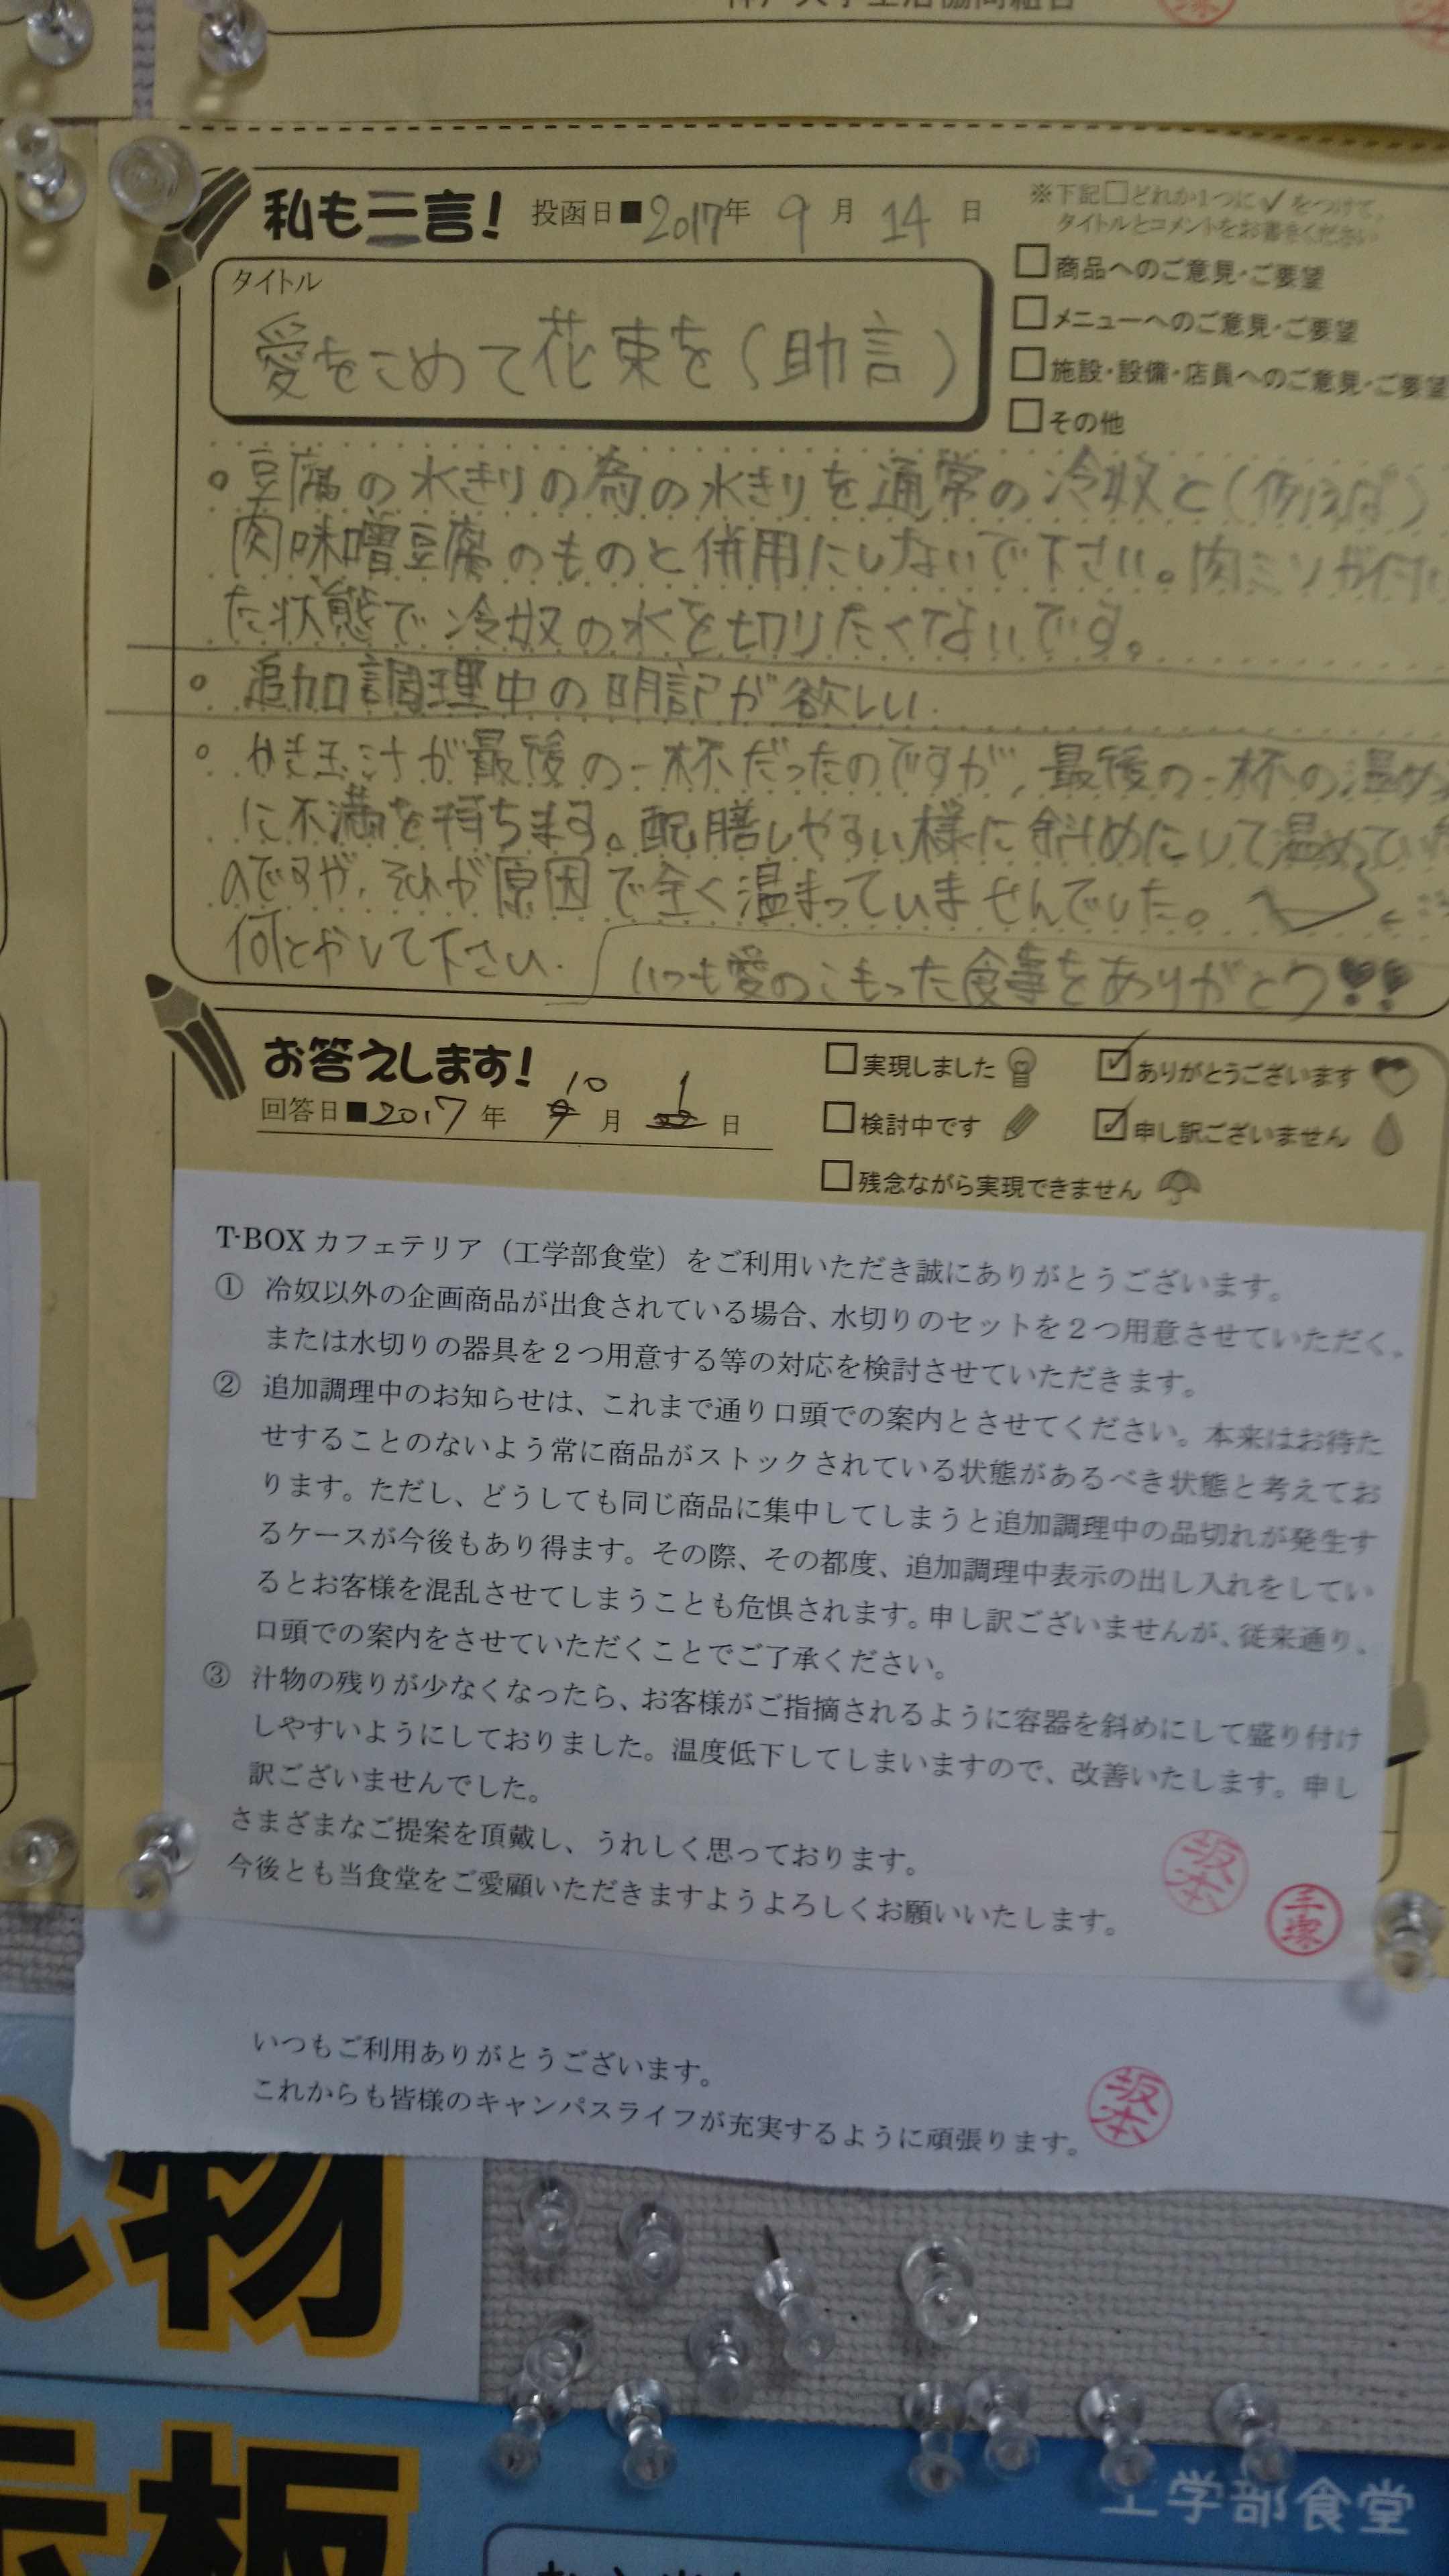 神戸大学生活協同組合
私も三言!
投函日■2017年 9月 14日
※下記□どれか1つに✓をつけて、
タイトルとコメントをお書きください
タイトル
愛をこめて花束を(助言)
□商品へのご意見・ご要望
□メニューへのご意見・ご要望
□施設・設備・店員へのご意見・ご要望
□その他
○豆腐の水きりの為の水きりを通常の冷奴と(例えば)
肉味噌豆腐のものと併用にしないで下さい。肉ミソが付い
た状態で冷奴の水を切りたくないです。
○追加調理中の明記が欲しい
○かき玉汁が最後の一杯だったのですが、最後の一杯の温め
に不満を持ちます。配膳しやすい様に斜めにして温めてい
のですが、それが原因で全く温まっていませんでした。
何とかして下さい。
いつも愛のこもった食事をありがとう♥♥
お答えします!
回答日■2017年 10月 1日
□実現しました
☑ありがとうございます
□検討中です
☑申し訳ございません
□残念ながら実現できません
T-BOXカフェテリア(工学部食堂)をご利用いただき誠にありがとうございます。
① 冷奴以外の企画商品が出食されている場合、水切りのセットを2つ用意させていただく、
または水切りの器具を2つ用意する等の対応を検討させていただきます。
② 追加調理中のお知らせは、これまで通り口頭での案内とさせてください。本来はお待た
せすることのないよう常に商品がストックされている状態があるべき状態と考えてお
ります。ただし、どうしても同じ商品に集中してしまうと追加調理中の品切れが発生す
るケースが今後もあり得ます。その際、その都度、追加調理中表示の出し入れをしてい
るとお客様を混乱させてしまうことも危惧されます。申し訳ございませんが、従来通り、
口頭での案内をさせていただくことでご了承ください。
③ 汁物の残りが少なくなったら、お客様がご指摘されるように容器を斜めにして盛り付け
しやすいようにしておりました。温度低下してしまいますので、改善いたします。申し
訳ございませんでした。
さまざまなご提案を頂戴し、うれしく思っております。
今後とも当食堂をご愛顧いただきますようよろしくお願いいたします。
坂本
手塚
いつもご利用ありがとうございます。
これからも皆様のキャンパスライフが充実するように頑張ります。
坂本
れ物
示板
工学部食堂